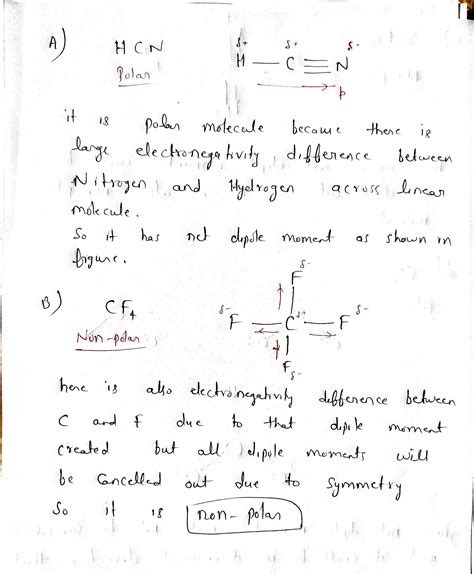 A) HCN δ+ δ+ δ-
Polar H — C ≡ N
p
it is polar molecule because there is
large electronegativity difference between
Nitrogen and Hydrogen across linear
molecule.
So it has net dipole moment as shown in
figure.
B) CF4 δ-
Non-polar F
δ- F — C δ+ — F δ-
F δ-
here is also electronegativity difference between
C and F due to that dipole moment
created but all dipole moments will
be cancelled out due to symmetry
So it is non-polar